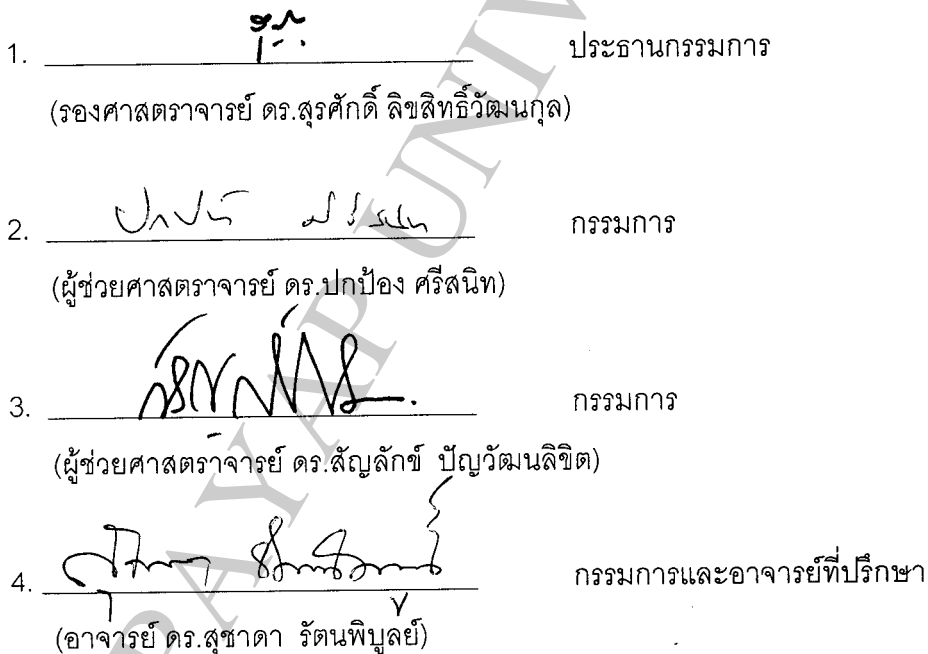 1. ประธานกรรมการ
(รองศาสตราจารย์ ดร.สุรศักดิ์ ลิขสิทธิ์วัฒนกุล)
2. ปกป้อง ศรีสนิท กรรมการ
(ผู้ช่วยศาสตราจารย์ ดร.ปกป้อง ศรีสนิท)
3. กรรมการ
(ผู้ช่วยศาสตราจารย์ ดร.สัญลักข์ ปัญวัฒนลิขิต)
4. กรรมการและอาจารย์ที่ปรึกษา
(อาจารย์ ดร.สุชาดา รัตนพิบูลย์)
PAYAP UNIV